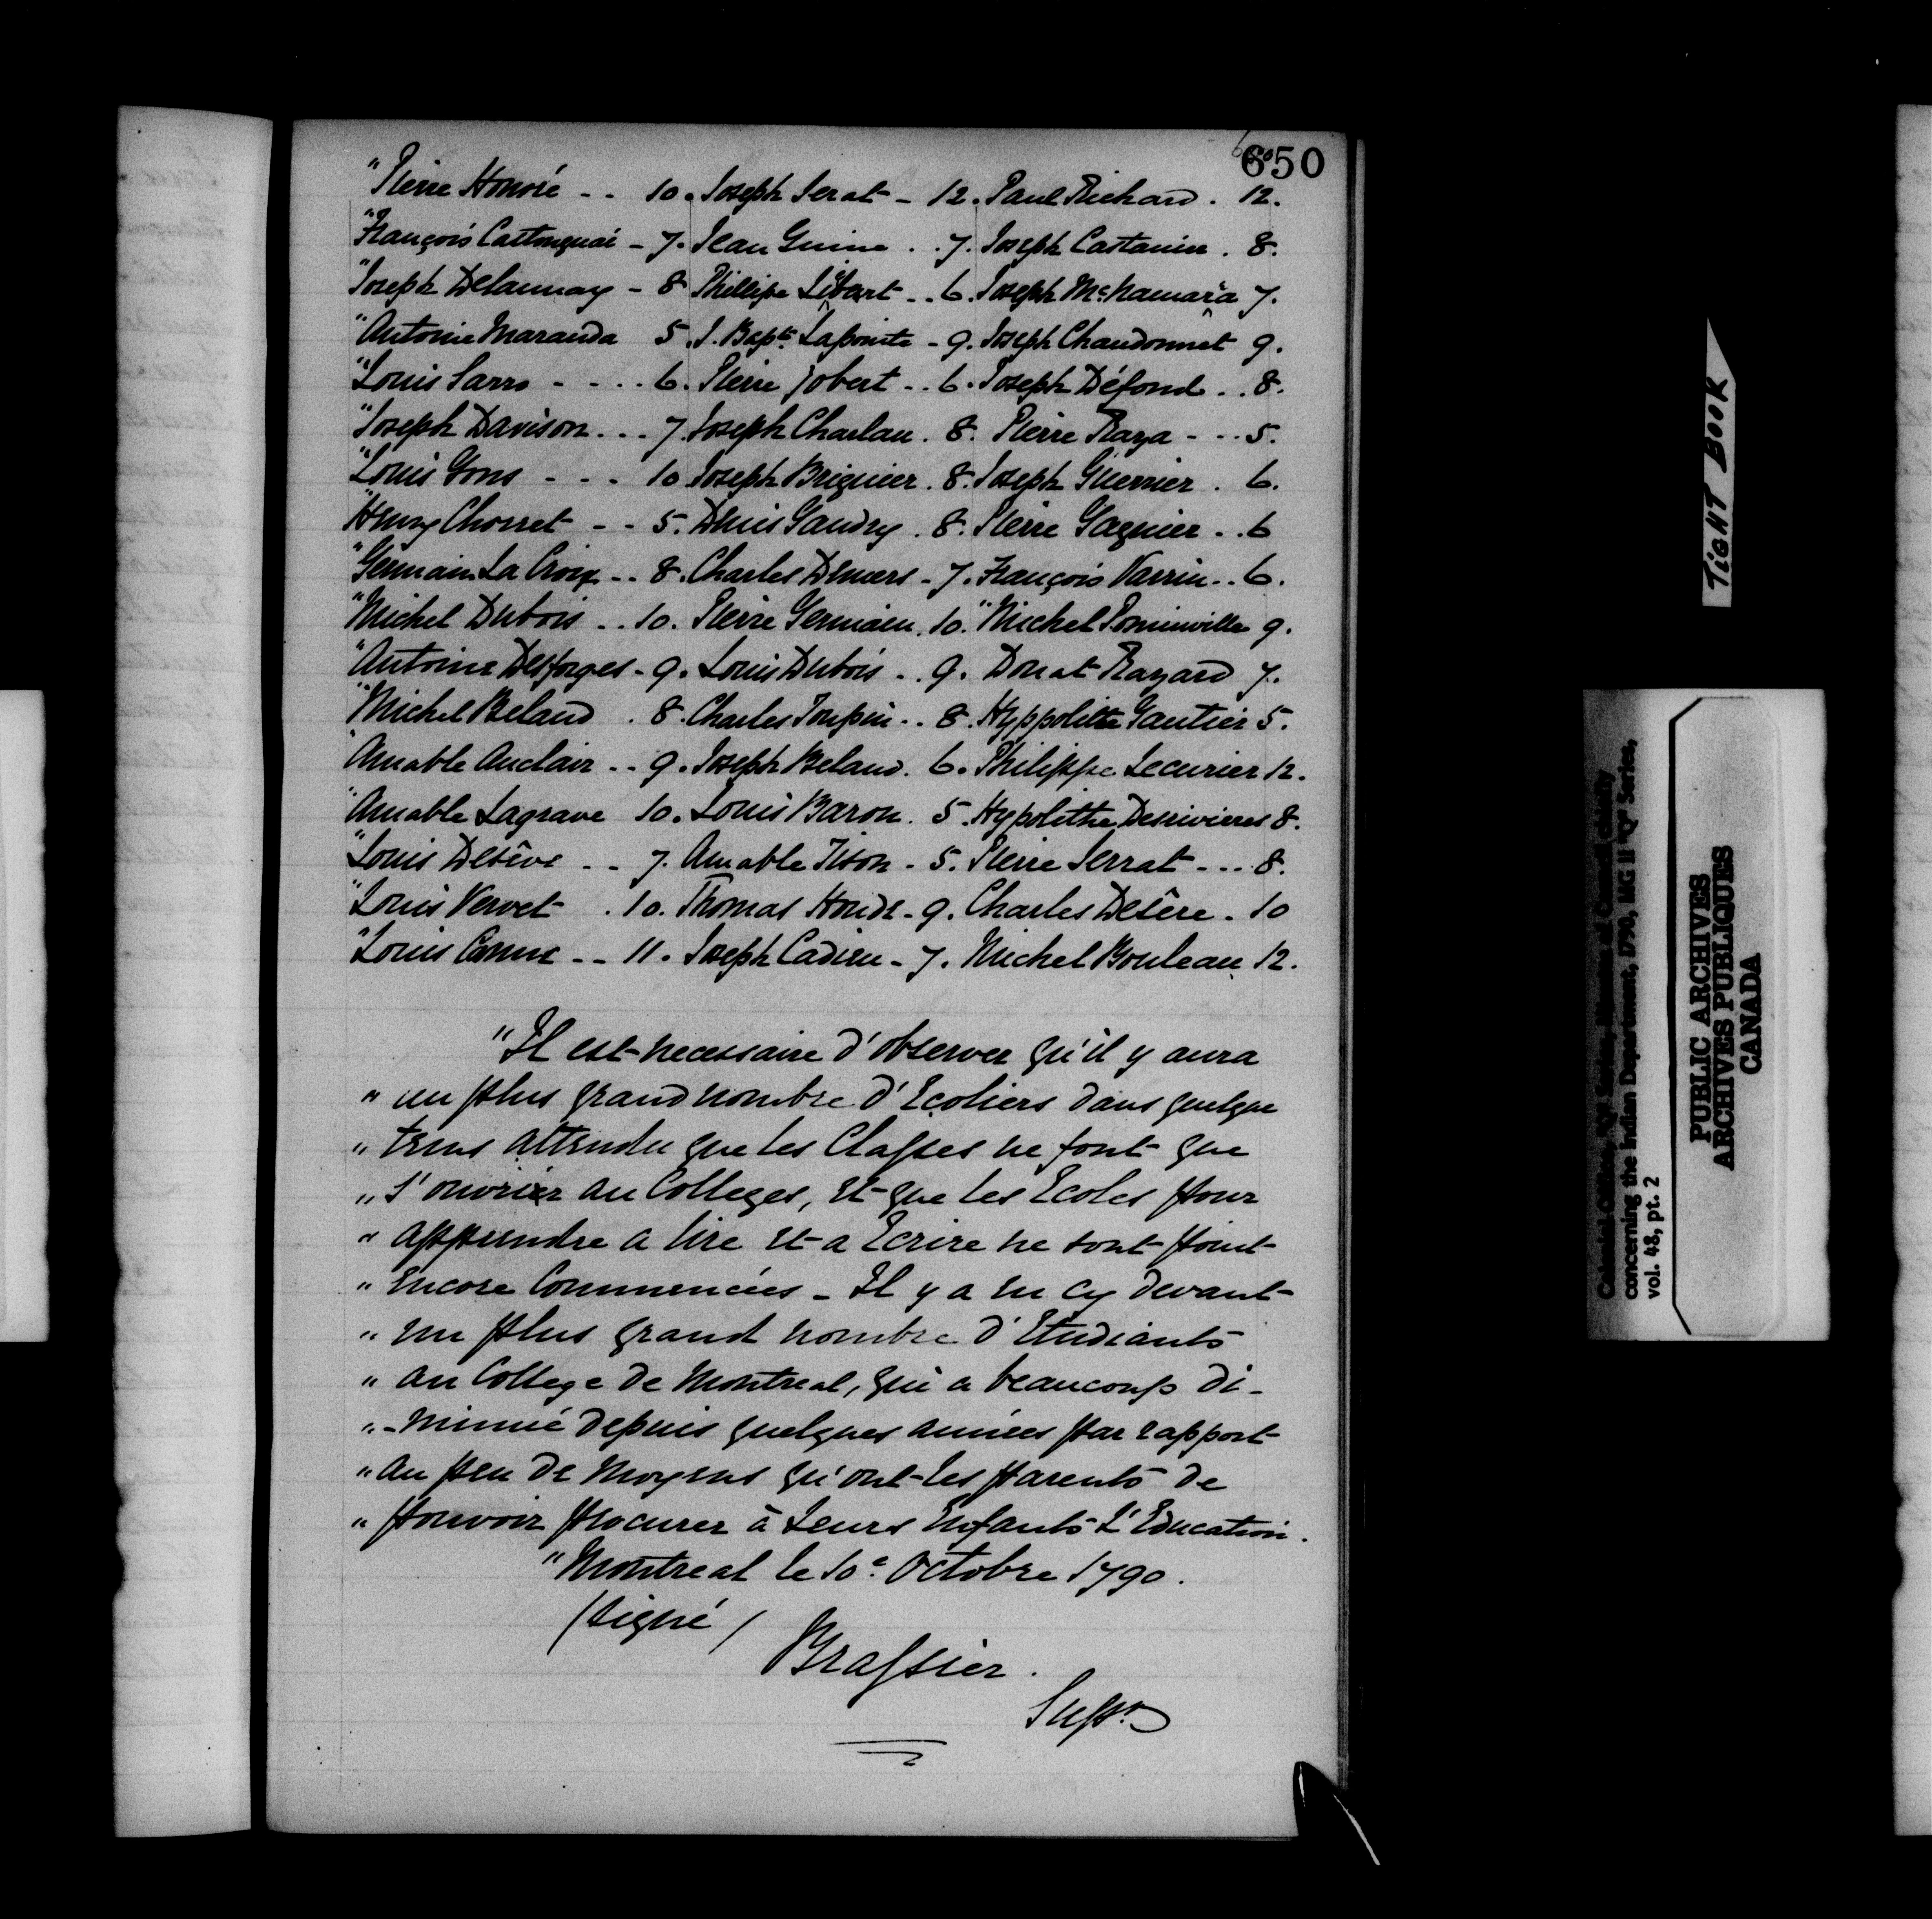 650
"Pierre Honoré - - 10. Joseph Serat - 12. Paul Richard . 12.
"François Castonguai - 7. Jean Guine . . 7. Joseph Castanier . 8.
"Joseph Delaunay - 8 Phillipe Libart - . 6. Joseph McNamara 7.
"Antoine Maranda 5. J. Bapte Lapointe - 9. Joseph Chaudonnet 9.
"Louis Sarro - - . . 6. Pierre Jobert - . 6. Joseph Défond . . 8.
"Joseph Davison . . . 7. Joseph Charlau . 8. Pierre Raza - . . 5.
"Louis Gons - - - 10 Joseph Briguier . 8. Joseph Guerrier . 6.
"Henry Chorret - - 5. Denis Gaudry . 8. Pierre Gagnier . . 6
"Germain La Croix - . 8. Charles Demers - 7. François Varrin . . 6.
"Michel Dubois . . 10. Pierre Germain . 10. "Michel Pominville 9.
"Antoine Desforges - 9. Louis Dubois . . 9. Donat Razard 7.
"Michel Beland . 8. Charles Toupin . . 8. Hyppolithe Gautier 5.
"Amable Auclair . . 9. Joseph Beland . 6. Philippe Lecurier 12.
"Amable Lagrave 10. Louis Baron . 5. Hypolithe Desrivieres 8.
"Louis Desêve . . 7. Amable Tison - 5. Pierre Serrat - . . 8.
"Louis Vervet . 10. Thomas Houde - 9. Charles Desêre . 10
"Louis Comme - - 11. Joseph Cadieu - 7. Michel Bouleau 12.
"Il est necessaire d'observer qu'il y aura
" un plus grand nombre d'Ecoliers dans quelque
" tems attendu que les Classes ne font que
" s'ouvrier au Colleges, et que les Ecoles pour
" apprendre a lire et a Ecrire ne sont point
" encore Commencées - Il y a eu cy devant
" un plus grand nombre d'Etudiants
" au College de Montreal, qui a beaucoup di-
" -minué depuis quelques années par rapport
" au peu de moyens qu'ont les parents de
" pouvoir procurer à leurs Enfants L'Education.
"Montreal le 10e Octobre 1790.
/signé/
Brassier.
Supr.
TIGHT BOOK
concerning the Indian Department, 1790, MG 11 "Q" Series,
vol. 48, pt. 2
PUBLIC ARCHIVES
ARCHIVES PUBLIQUES
CANADA